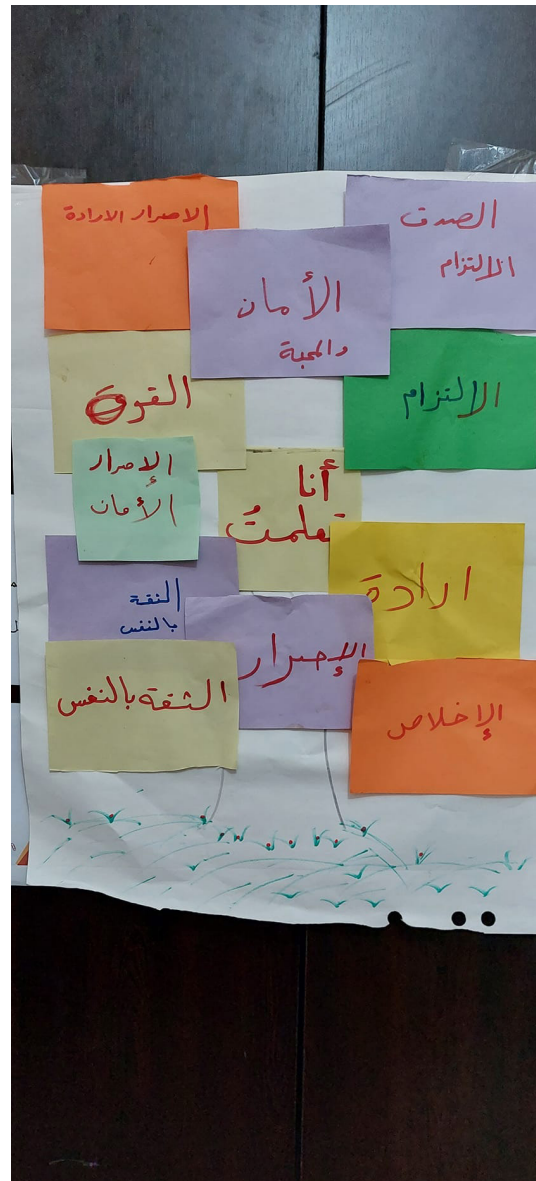 الصدق
الالتزام
الاصرار الارادة
الأمان
والمحبة
الإلتزام
القوة
الإصرار
الأمان
أنا
تعلمتُ
ارادة
الثقة
بالنفس
الإصرار
الثقة بالنفس
الإخلاص